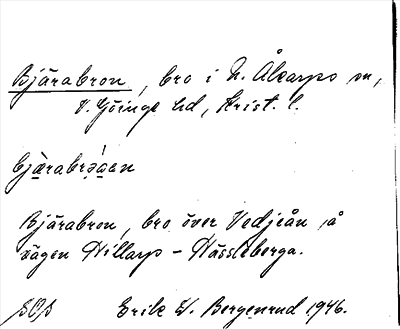 Bjärabron, bro i N. Åkarps sn,
V. Göinge hd, Krist. l.
Bjärabron, bro över Vedjeån å
vägen Hillarp - Hässleberga.
Erik W. Bergenrud 1946.